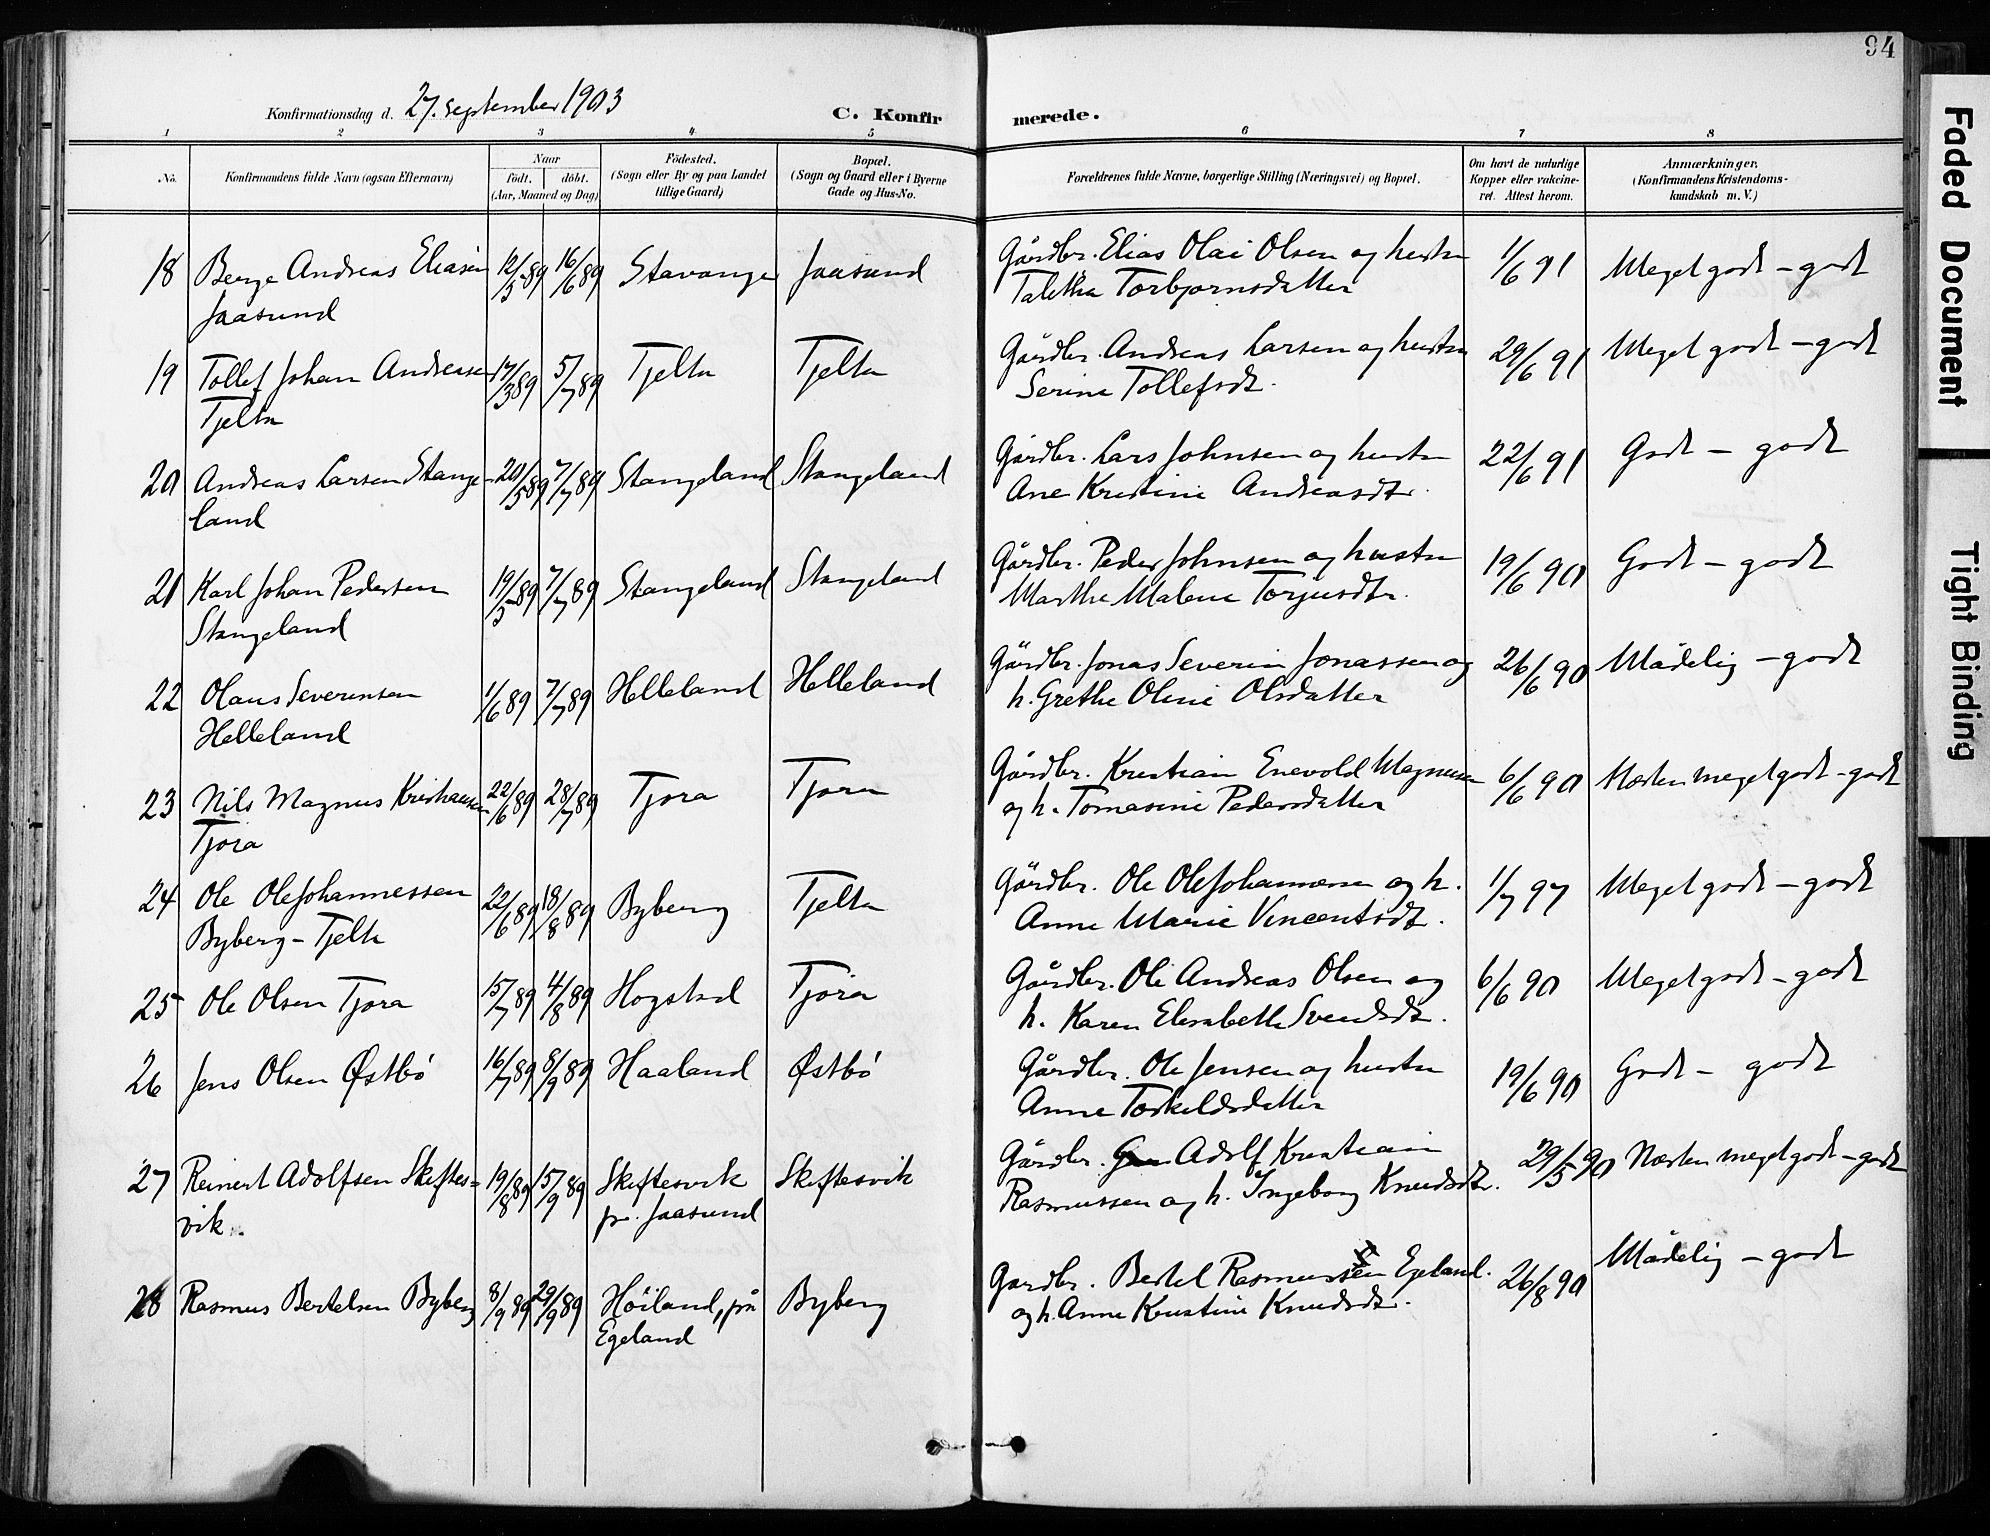 94
Konfirmationsdag d. 27. september 1903
C. Konfirmerede.
1 2 3 4 5 6 7 8
No.
Konfirmandens fulde Navn (ogsaa Efternavn)
Naar
Födt. döbt.
(Aar, Maaned og Dag)
Födested.
(Sogn eller By og paa Landet
tillige Gaard)
Bopæl.
(Sogn og Gaard eller i Byerne
Gade og Hus-No.
Forældrenes fulde Navne, borgerlige Stilling (Næringsvei) og Bopæl.
Om havt de naturlige
Kopper eller vakcine-
ret. Attest herom.
Anmærkninger.
(Konfirmandens Kristendoms-
kundskab m. V.)
18 Berge Andreas Eliasen 12/5 89 16/6 89 Stavanger Jaasund Gårdbr. Elias Olai Olsen og hustru 1/6 91 Meget godt – godt
Jaasund Taletha Torbjørnsdatter
19 Tollef Johan Andreasen 17/3 89 5/7 89 Tjelta Tjelta Gårdbr. Andreas Larsen og hustru 29/6 91 Meget godt – godt
Tjelta Serine Tollefsdt.
20 Andreas Larsen Stange- 20/5 89 7/7 89 Stangeland Stangeland Gårdbr. Lars Johnsen og hustru 22/6 91 Godt – godt
land Ane Kristine Andreasdtr.
21 Karl Johan Pedersen 19/5 89 7/7 89 Stangeland Stangeland Gårdbr. Peder Johnsen og hustru 19/6 90 Godt – godt
Stangeland Marthe Malene Torjusdtr.
22 Olaus Severinsen 1/6 89 7/7 89 Helleland Helleland Gårdbr. Jonas Severin Jonassen og 26/6 90 Mådelig – godt
Helleland h. Grethe Oline Olsdatter
23 Nils Magnus Kristiansen 22/6 89 28/7 89 Tjora Tjora Gårdbr. Kristian Enevold Magnusen 6/6 90 Næsten meget godt – godt
Tjora og h. Tomasine Pedersdatter
24 Ole Ole Johannessen 22/6 89 18/8 89 Byberg Tjelta Gårdbr. Ole Ole Johannesen og h. 1/7 97 Meget godt – godt
Byberg – Tjelta Anne Marie Vincentsdt.
25 Ole Olsen Tjora 15/7 89 4/8 89 Hogstad Tjora Gårdbr. Ole Andreas Olsen og 6/6 90 Meget godt – godt
h. Karen Elisabeth Svendsdt.
26 Jens Olsen Østbö 16/7 89 8/9 89 Haaland Østbö Gårdbr. Ole Jensen og hustru 19/6 90 Godt – godt
Anne Torkeldsdatter
27 Reinert Adolfsen Skiftes= 19/8 89 15/9 89 Skiftesvik Skiftesvik Gårdbr. Adolf Kristian 29/5 90 Næsten meget godt – godt
vik. pr. Jaasund Rasmussen og h. Ingeborg Knudsdtr.
28 Rasmus Bertelsen Byberg 8/9 89 29/9 89 Höiland, på Byberg Gardbr. Bertel Rasmussen Egeland. 26/8 90 Mådelig – godt
Egeland og h. Anne Kristine Knudsdtr.
Faded Document
Tight Binding